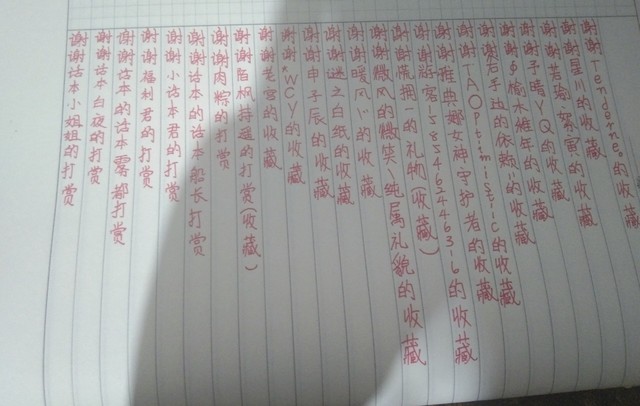 谢谢Tenderne。的收藏
谢谢星川的收藏
谢谢若瑜的收藏
谢谢子暗YQ的收藏
谢谢愉木雉年的收藏
谢谢君子独的依赖"的收藏
谢谢TAOptimistic的收藏
谢谢雅典娜女神守护者的收藏
谢谢游客1585462446316的收藏
谢谢慌拥一的礼物(收藏)
谢谢微风的微笑~纯属礼貌的收藏
谢谢暖风シ的收藏
谢谢迷之白纸的收藏
谢谢申子辰的收藏
谢谢WCY的收藏
谢谢的收藏
谢谢陌枫持遥的打赏(收藏)
谢谢肉粽的打赏
谢谢话本的话本船长打赏
谢谢小话本君的打赏
谢谢福利君的打赏
谢谢话本的话本零都打赏
谢谢话本白夜的打赏
谢谢话本小姐姐的打赏